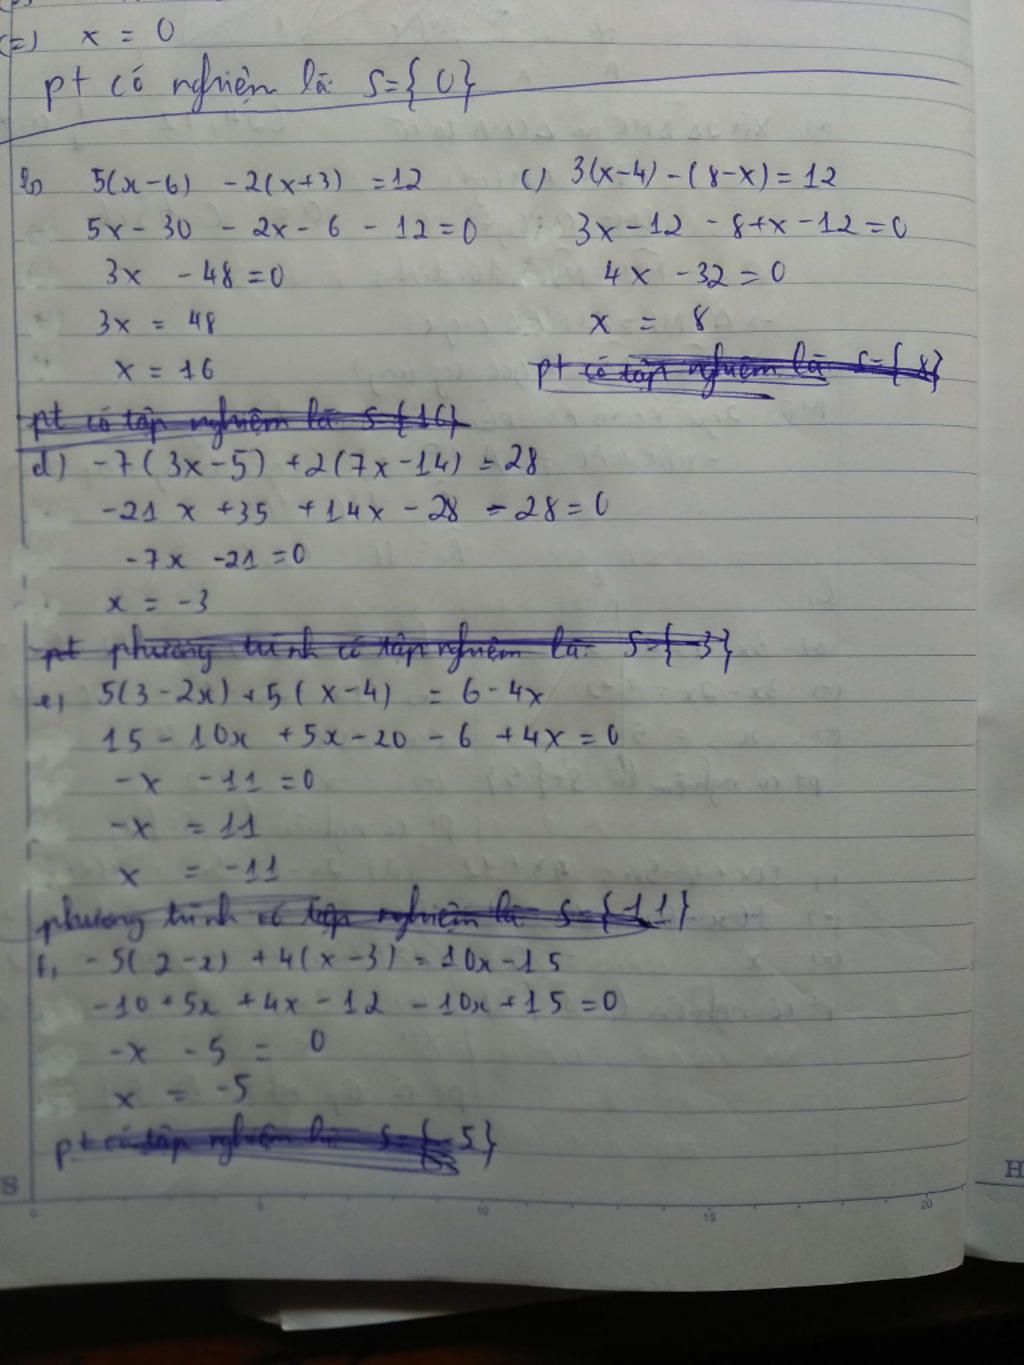 (=) x = 0
pt có nghiệm là S={0}
b) 5(x-6) -2(x+3) =12
5x- 30 - 2x - 6 - 12=0
3x - 48=0
3x = 48
x = 16
pt có tập nghiệm là S {16}
c) 3(x-4) - (8-x) = 12
3x-12 - 8+x -12=0
4x -32=0
x = 8
pt có tập nghiệm là S={8}
d) -7(3x-5) +2(7x-14) =28
-21x +35 +14x - 28 - 28=0
-7x -21=0
x = -3
pt phương trình có tập nghiệm là S={-3}
e, 5(3-2x) +5(x-4) = 6-4x
15 - 10x +5x-20 - 6 +4x=0
-x -11=0
-x = 11
x = -11
phương trình có tập nghiệm là S={11}
f, -5(2-x) +4(x-3) = 10x-15
-10+5x +4x-12 -10x+15=0
-x -5 = 0
x = -5
pt có tập nghiệm là S={-5}
S 0 5 10 15 20
H